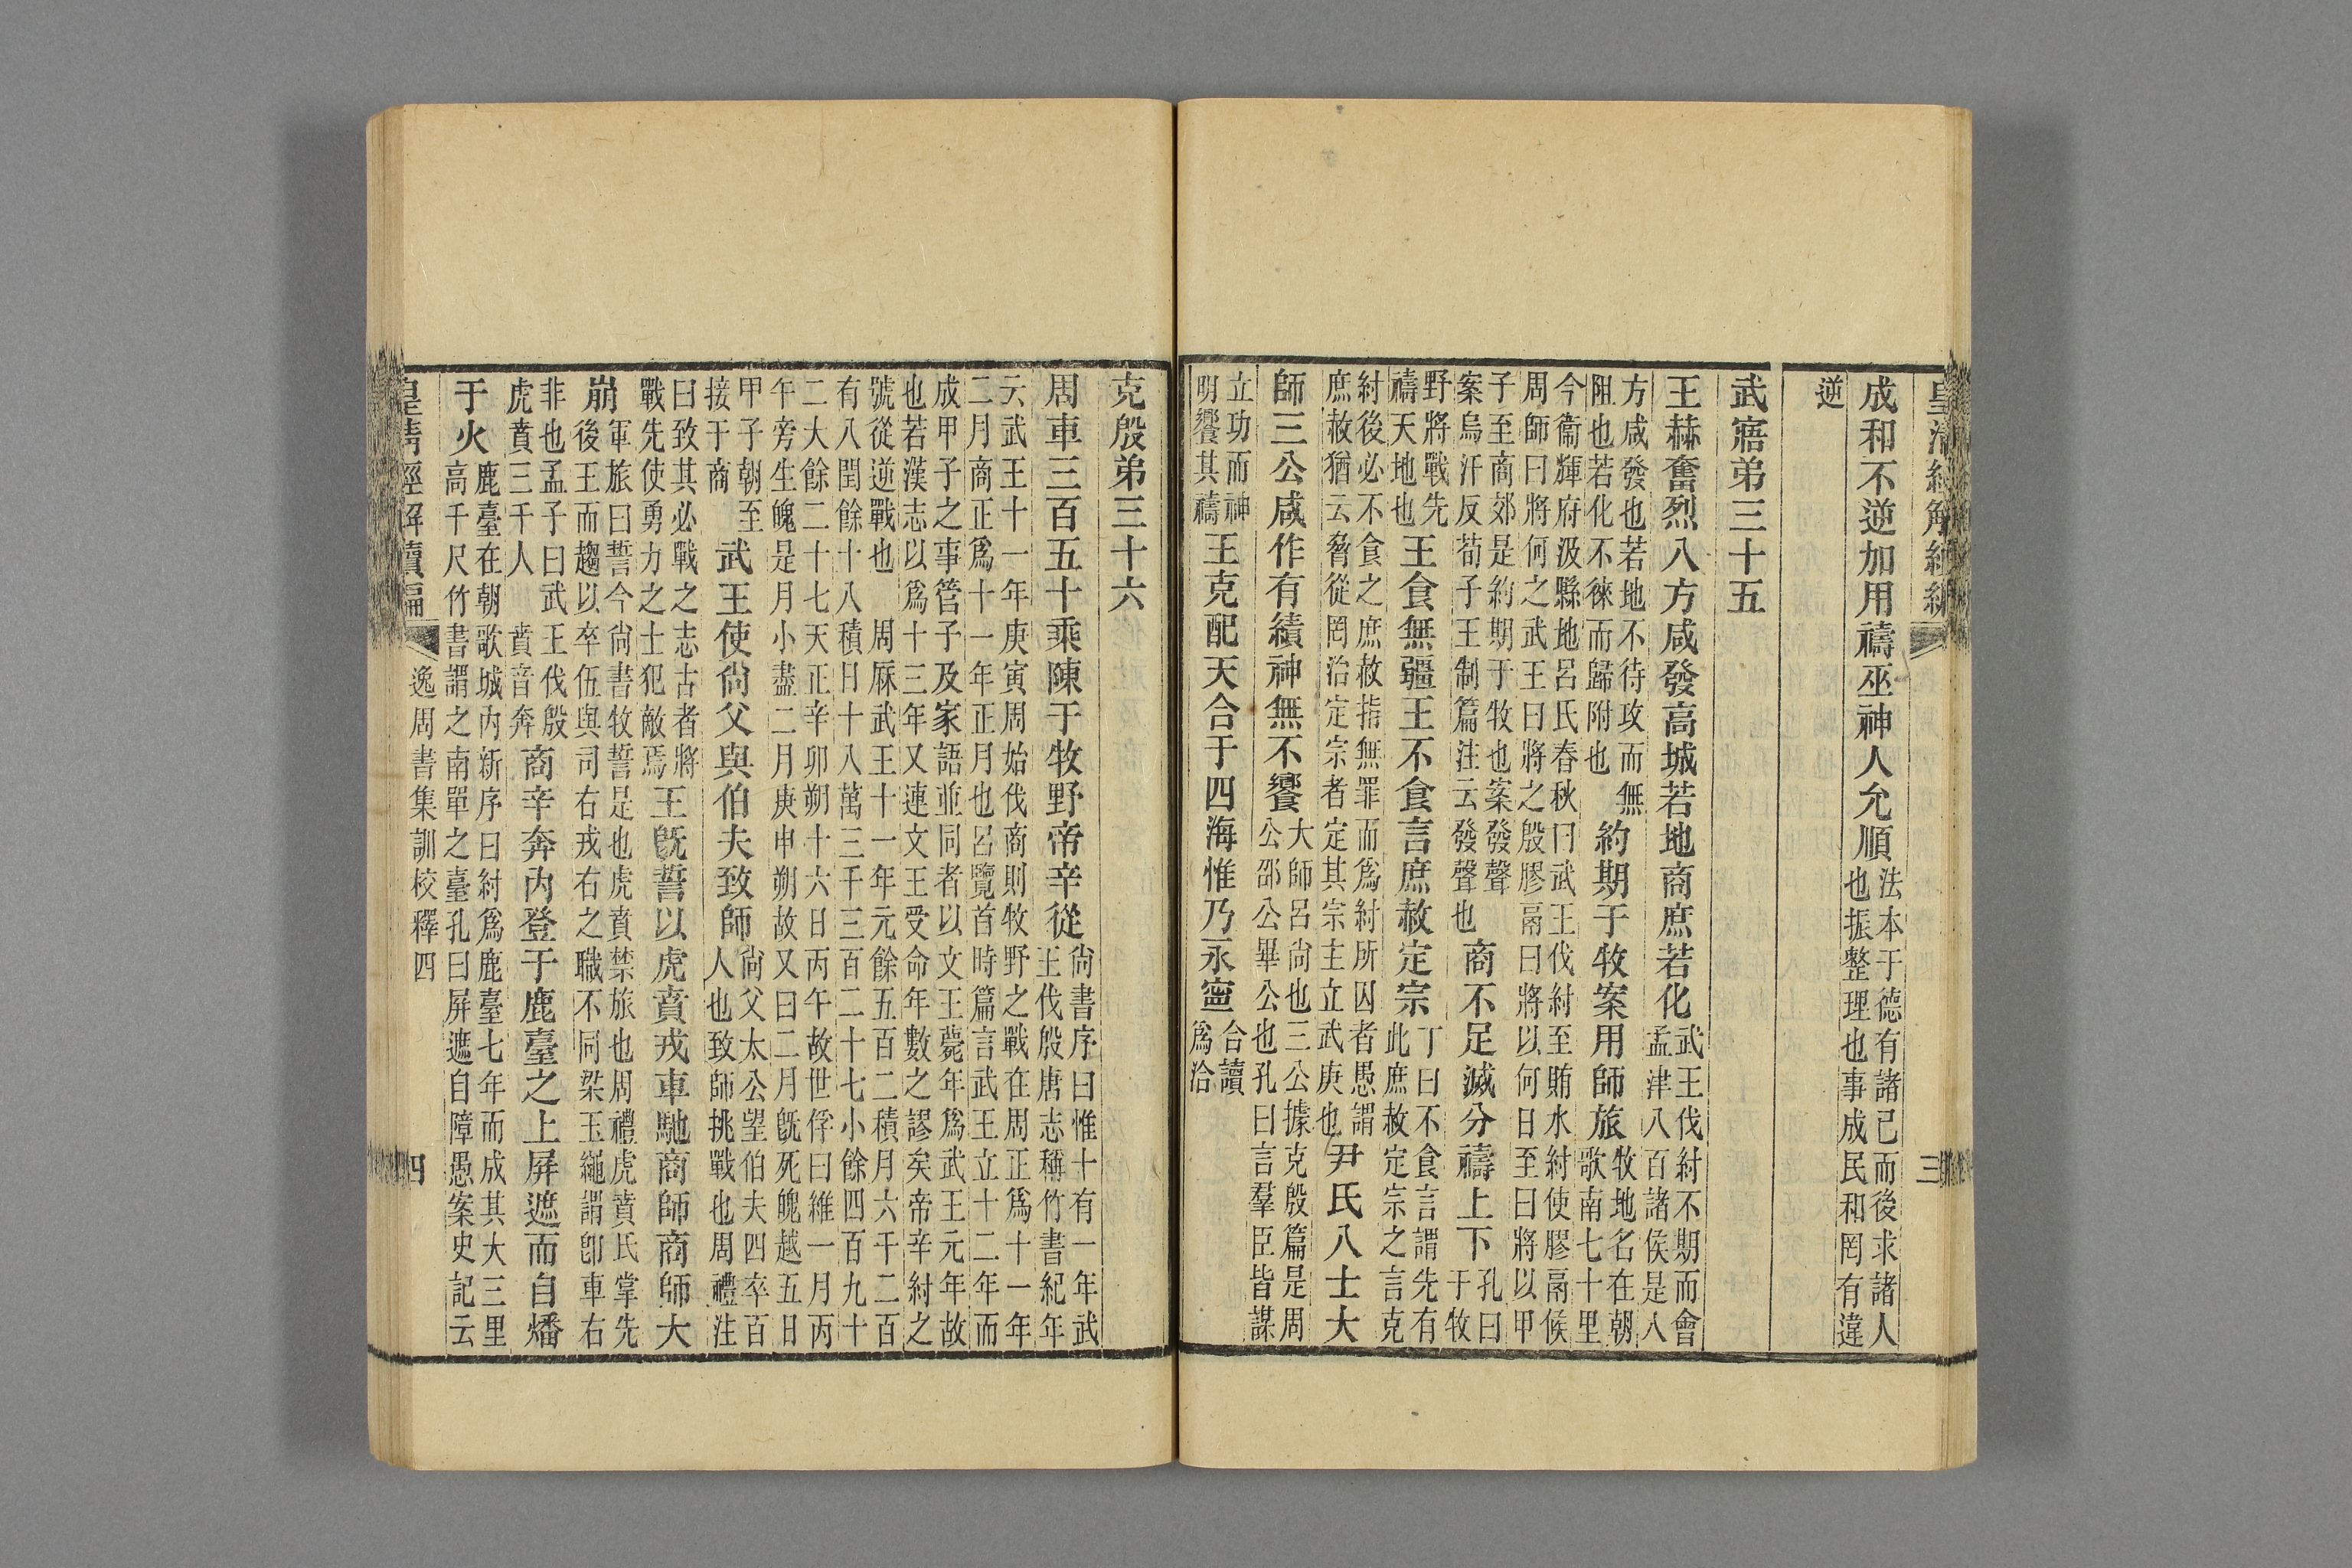 皇清經解續編 三
成和不逆加用禱巫神人允順法本于德有諸己而後求諸人也振整理也事成民和罔有違
逆
武寤弟三十五
王赫奮烈八方咸發高城若地商庶若化武王伐紂不期而會孟津八百諸侯是八
方咸發也若地不待攻而無阻也若化不徠而歸附也約期于牧案用師旅牧地名在朝歌南七十里
今衞輝府汲縣地呂氏春秋曰武王伐紂至鮪水紂使膠鬲候周師曰將何之武王曰將之殷膠鬲曰將以何日至曰將以甲
子至商郊是約期于牧也案發聲案烏汗反荀子王制篇注云發聲也商不足滅分禱上下孔曰于牧
野將戰先禱天地也王食無疆王不食言庶赦定宗丁曰不食言謂先有此庶赦定宗之言克
紂後必不食之庶赦指無罪而爲紂所囚者愚謂庶赦猶云脅從罔治定宗者定其宗主立武庚也尹氏八士大
師三公咸作有績神無不饗大師呂尙也三公據克殷篇是周公邵公畢公也孔曰言羣臣皆謀
立功而神明饗其禱王克配天合于四海惟乃永寍合讀爲洽
克殷弟三十六
周車三百五十乘陳于牧野帝辛從尙書序曰惟十有一年武王伐殷唐志稱竹書紀年
云武王十一年庚寅周始伐商則牧野之戰在周正爲十一年二月商正爲十一年正月也呂覽首時篇言武王立十二年而
成甲子之事管子及家語並同者以文王薨年爲武王元年故也若漢志以爲十三年又連文王受命年數之謬矣帝辛紂之
號從逆戰也　周厤武王十一年元餘五百二積月六千二百有八閏餘十八積日十八萬三千三百二十七小餘四百九十
二大餘二十七天正辛卯朔十六日丙午故世俘曰維一月丙午旁生魄是月小盡二月庚申朔故又曰二月旣死魄越五日
甲子朝至接于商武王使尙父與伯夫致師尙父太公望伯夫四卒百人也致師挑戰也周禮注
曰致其必戰之志古者將戰先使勇力之士犯敵焉王旣誓以虎賁戎車馳商師商師大
崩軍旅曰誓今尙書牧誓是也虎賁禁旅也周禮虎賁氏掌先後王而趨以卒伍與司右戎右之職不同梁玉繩謂卽車右
非也孟子曰武王伐殷虎賁三千人　賁音奔商辛奔內登于鹿臺之上屏遮而自燔
于火鹿臺在朝歌城內新序曰紂爲鹿臺七年而成其大三里高千尺竹書謂之南單之臺孔曰屏遮自障愚案史記云
皇淸經解續編 逸周書集訓校釋四 四